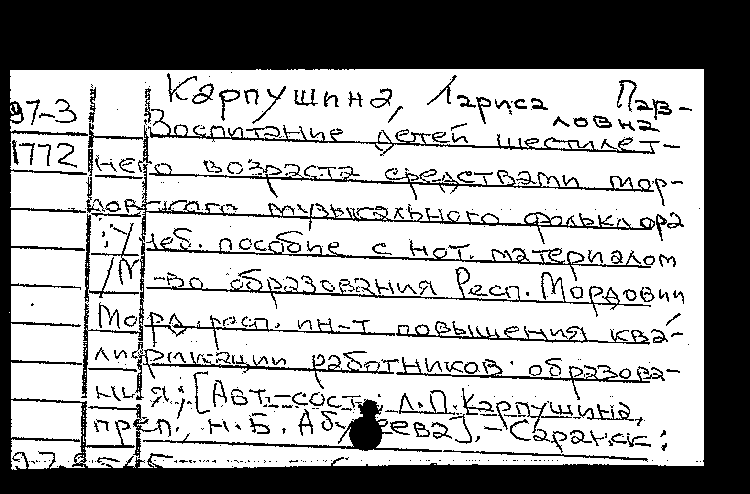 97-3 Карпушина, Лариса Пав-
ловна
1772 Воспитание детей шестилет-
него возраста средствами мор-
довского музыкального фольклора
: Учеб. пособие с нот. материалом
/ М-во образования Респ. Мордовии
Морд. респ. ин-т повышения ква-
лификации работников образова-
ния; [Авт.-сост.: Л.П.Карпушина,
преп., Н.Б. ]. - Саранск: